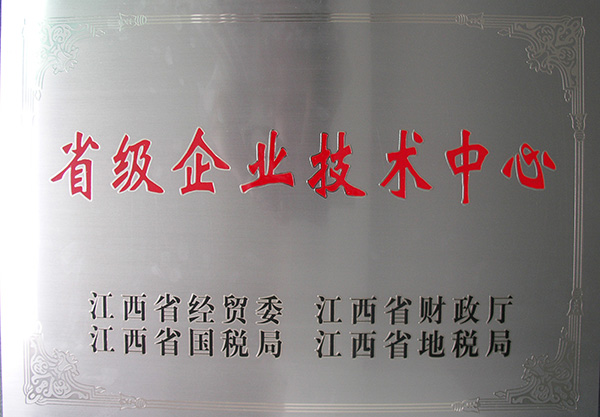 省级企业技术中心
江西省经贸委 江西省财政厅
江西省国税局 江西省地税局